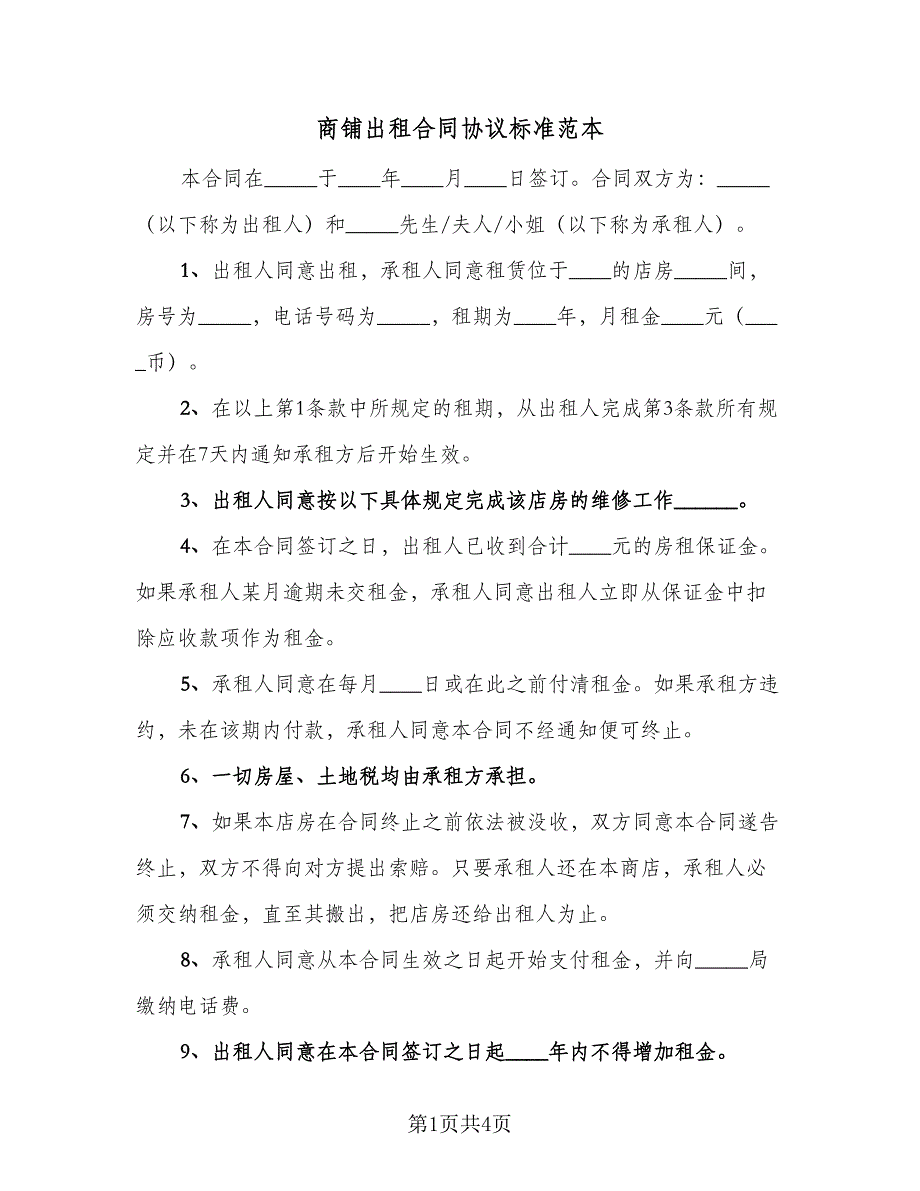 商铺出租合同协议标准范本
本合同在_____于____年____月____日签订。合同双方为：_____
（以下称为出租人）和_____先生/夫人/小姐（以下称为承租人）。
1、出租人同意出租，承租人同意租赁位于____的店房_____间，
房号为_____，电话号码为_____，租期为____年，月租金____元（___
_币）。
2、在以上第1条款中所规定的租期，从出租人完成第3条款所有规
定并在7天内通知承租方后开始生效。
3、出租人同意按以下具体规定完成该店房的维修工作______。
4、在本合同签订之日，出租人已收到合计____元的房租保证金。
如果承租人某月逾期未交租金，承租人同意出租人立即从保证金中扣
除应收款项作为租金。
5、承租人同意在每月____日或在此之前付清租金。如果承租方违
约，未在该期内付款，承租人同意本合同不经通知便可终止。
6、一切房屋、土地税均由承租方承担。
7、如果本店房在合同终止之前依法被没收，双方同意本合同遂告
终止，双方不得向对方提出索赔。只要承租人还在本商店，承租人必
须交纳租金，直至其搬出，把店房还给出租人为止。
8、承租人同意从本合同生效之日起开始支付租金，并向_____局
缴纳电话费。
9、出租人同意在本合同签订之日起____年内不得增加租金。
第1页共4页